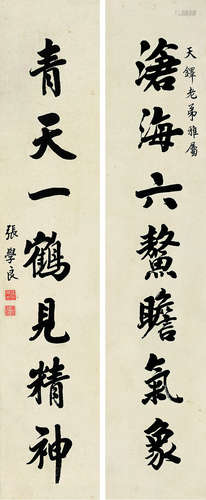 天鐸老弟雅屬
滄海六鰲瞻氣象
青天一鶴見精神
張學良